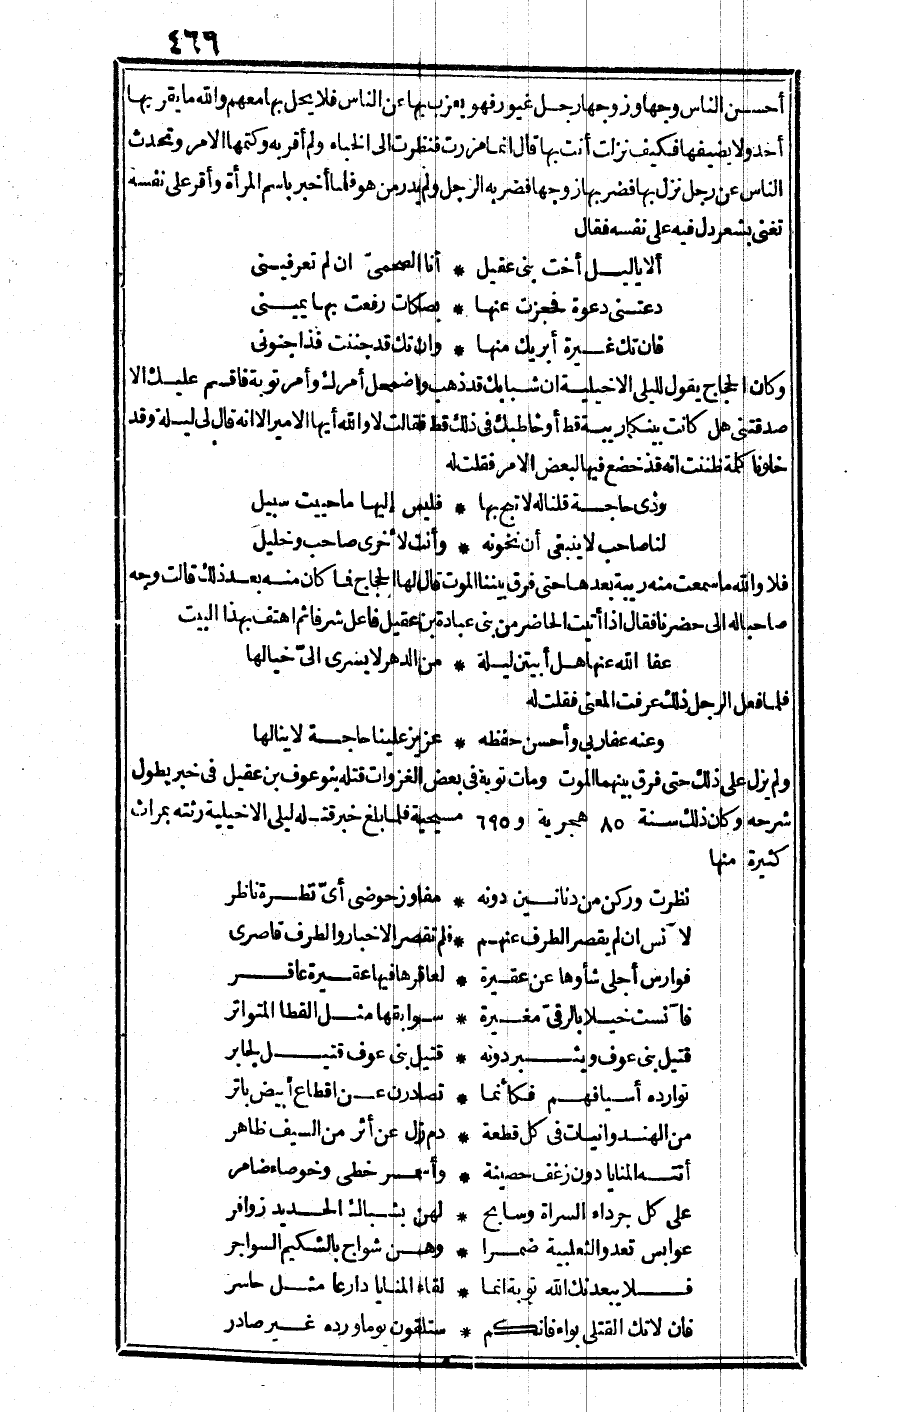 ٤٦٩
أحسن الناس وجها وزوجها رجل غيور فهو يعزب بها عن الناس فلا يحل بها معهم والله ما يقربها
أحد ولا يضيفها فكيف نزلت أنت بها قال انما مررت فنظرت الى الخباء ولم أقربه وكتمها الامر وتحدث
الناس عن رجل نزل بها فضربها زوجها فضربه الرجل ولم يدر من هو فلما أخبر باسم المرأة وأقر على نفسه
تغنى بشعر دل فيه على نفسه فقال
ألا ياليل أخت بنى عقيل * أنا الصحمىّ ان لم تعرفينى
دعتنى دعوة فحجزت عنها * بصكات رفعت بها يمينى
فان تك غيرة أبريك منها * وان تك قد جننت فذا جنونى
وكان الحجاج يقول لليلى الاخيلية ان شبابك قد ذهب واضمحل أمرك وأمر توبة فاقسم عليك الا
صدقتنى هل كانت بينكما ريبة قط أو خاطبك فى ذلك قط فقالت لا والله أيها الامير الا انه قال لى ليلة وقد
خلونا كلمة ظننت انه قد خضع فيها لبعض الامر فقلت له
وذى حاجة قلنا له لا تبح بها * فليس إليها ما حييت سبيل
لنا صاحب لا ينبغى أن نخونه * وأنت لأخرى صاحب وخليل
فلا والله ما سمعت منه ريبة بعدها حتى فرق بيننا الموت قال لها الحجاج فما كان منه بعد ذلك قالت وجه
صاحبا له الى حضرنا فقال اذا أتيت الحاضر من بنى عبادة بن عقيل فاعل شرفا ثم اهتف بهذا البيت
عفا الله عنها هل أبيتن ليلة * من الدهر لا يسرى الىّ خيالها
فلما فعل الرجل ذلك عرفت المعنى فقلت له
وعنه عفا ربى وأحسن حفظه * عزيز علينا حاجة لا ينالها
ولم يزل على ذلك حتى فرق بينهما الموت ومات توبة فى بعض الغزوات قتله بنو عوف بن عقيل فى خبر يطول
شرحه وكان ذلك سنة ٨٥ هجرية و ٦٩٥ مسيحية فلما بلغ خبر قتله ليلى الاخيلية رثته بمراث
كثيرة منها
نظرت وركن من دنانين دونه * مفاوز حوضى أىّ نظرة ناظر
لآنس ان لم يقصر الطرف عنهم * فلم تقصر الاخبار والطرف قاصرى
فوارس أجلى شأوها عن عقيرة * لعاقرها فيها عقيرة عاقر
فآنست خيلا بالرقىّ مغيرة * سوابقها مثل القطا المتواتر
قتيل بنى عوف ويثبر دونه * قتيل بنى عوف قتيل لجابر
توارده أسيافهم فكأنما * تصادرن عن اقطاع أبيض باتر
من الهندوانيات فى كل قطعة * دم زل عن أثر من السيف ظاهر
أتته المنايا دون زغف حصينة * وأسمر خطى وخوصاء ضامر
على كل جرداء السراة وسابح * لهن بشباك الحديد زوافر
عوابس تعدو الثعلبية ضمرا * وهن شواج بالشكيم السواجر
فلا يبعدنك الله توبة انما * لقاء المنايا دارعا مثل حاسر
فان لا تك القتلى بواء فانكم * ستلقون يوما ورده غير صادر